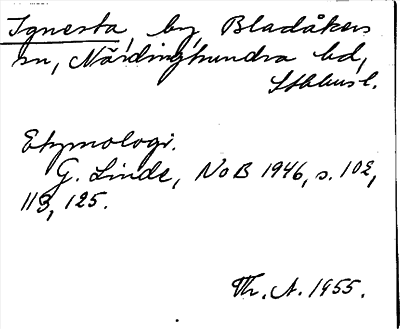 Ignesta, by, Bladåkers
sn, Närdinghundra hd,
Sthlms l.
Etymologi.
G. Linde, NoB 1946, s. 102,
113, 125.
Th. A. 1955.